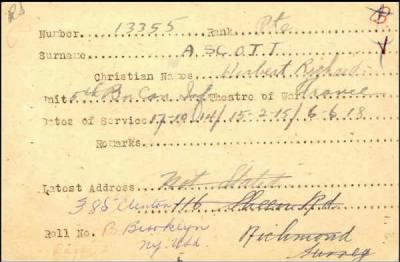 Number 13355 Rank Pte B
Surname ASCOTT
Christian Names Herbert Richard
Unit 5th Bn Can Inf Theatre of War France
Dates of Service 17-10-14/ 15-2-15/ 6-6-18
Remarks
Latest Address Not Stated
385 Clinton 116 Sheen Rd.
Roll No. B Brooklyn Richmond
NY. USA Surrey